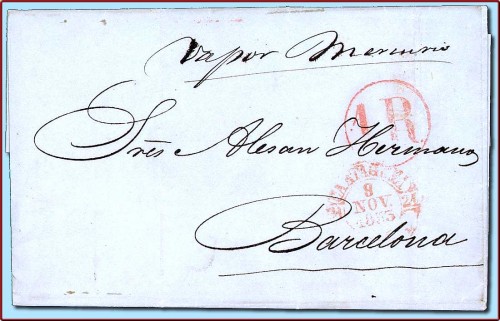 Vapor Mercurio
1R
Sres Alesan Hermanos
NOV.
Barcelona